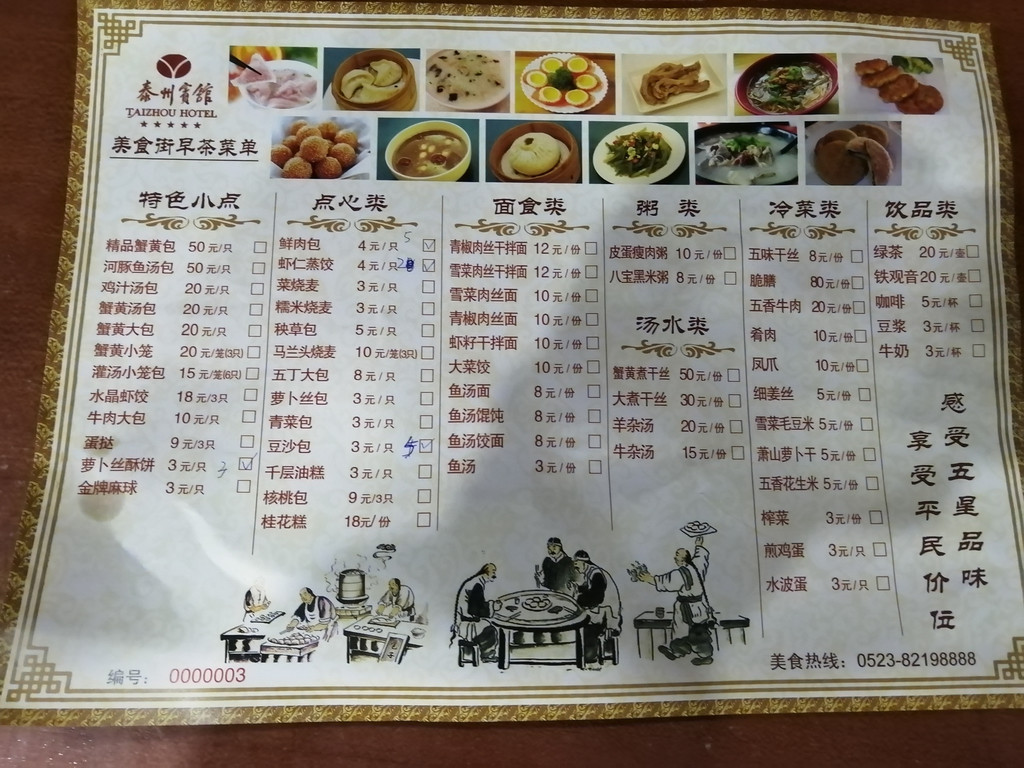 泰州賓館
TAIZHOU HOTEL
★★★★★
美食街早茶菜单
特色小点
精品蟹黄包 50元/只
河豚鱼汤包 50元/只
鸡汁汤包 20元/只
蟹黄汤包 20元/只
蟹黄大包 20元/只
蟹黄小笼 20元/笼(3只)
灌汤小笼包 15元/笼(6只)
水晶虾饺 18元/3只
牛肉大包 10元/只
蛋挞 9元/3只
萝卜丝酥饼 3元/只 3
金牌麻球 3元/只
点心类
鲜肉包 4元/只 5
虾仁蒸饺 4元/只
菜烧麦 3元/只
糯米烧麦 3元/只
秧草包 5元/只
马兰头烧麦 10元/笼(3只)
五丁大包 8元/只
萝卜丝包 3元/只
青菜包 3元/只
豆沙包 3元/只 5
千层油糕 3元/只
核桃包 9元/3只
桂花糕 18元/份
面食类
青椒肉丝干拌面 12元/份
雪菜肉丝干拌面 12元/份
雪菜肉丝面 10元/份
青椒肉丝面 10元/份
虾籽干拌面 10元/份
大菜饺 10元/份
鱼汤面 8元/份
鱼汤馄饨 8元/份
鱼汤饺面 8元/份
鱼汤 3元/份
粥 类
皮蛋瘦肉粥 10元/份
八宝黑米粥 8元/份
汤水类
蟹黄煮干丝 50元/份
大煮干丝 30元/份
羊杂汤 20元/份
牛杂汤 15元/份
冷菜类
五味干丝 8元/份
脆膳 80元/份
五香牛肉 20元/份
肴肉 10元/份
凤爪 10元/份
细姜丝 5元/份
雪菜毛豆米 5元/份
萧山萝卜干 5元/份
五香花生米 5元/份
榨菜 3元/份
煎鸡蛋 3元/只
水波蛋 3元/只
饮品类
绿茶 20元/壶
铁观音 20元/壶
咖啡 5元/杯
豆浆 3元/杯
牛奶 3元/杯
感受五星品味
享受平民价位
编号: 0000003
美食热线: 0523-82198888